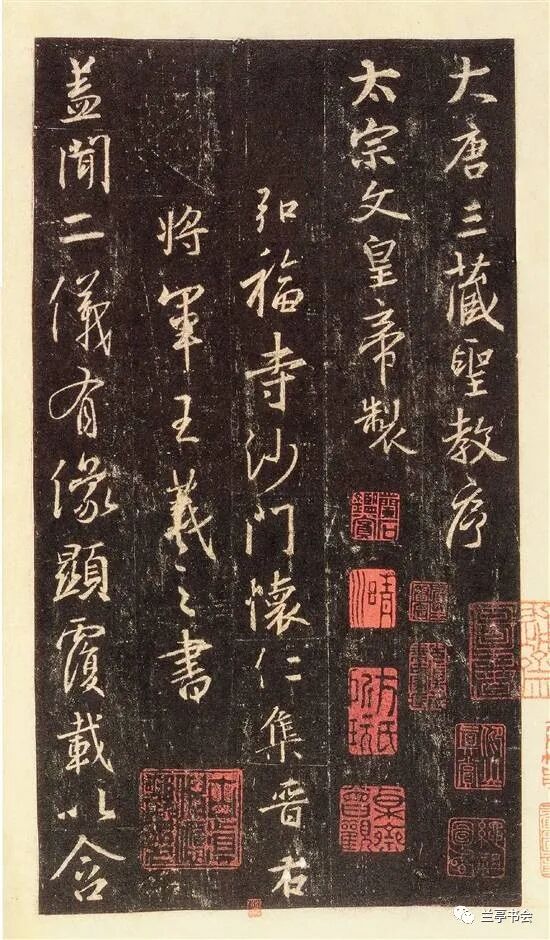 大唐三藏聖教序
太宗文皇帝製
弘福寺沙門懷仁集晉右
將軍王羲之書
蓋聞二儀有像顯覆載以含
兰亭书会